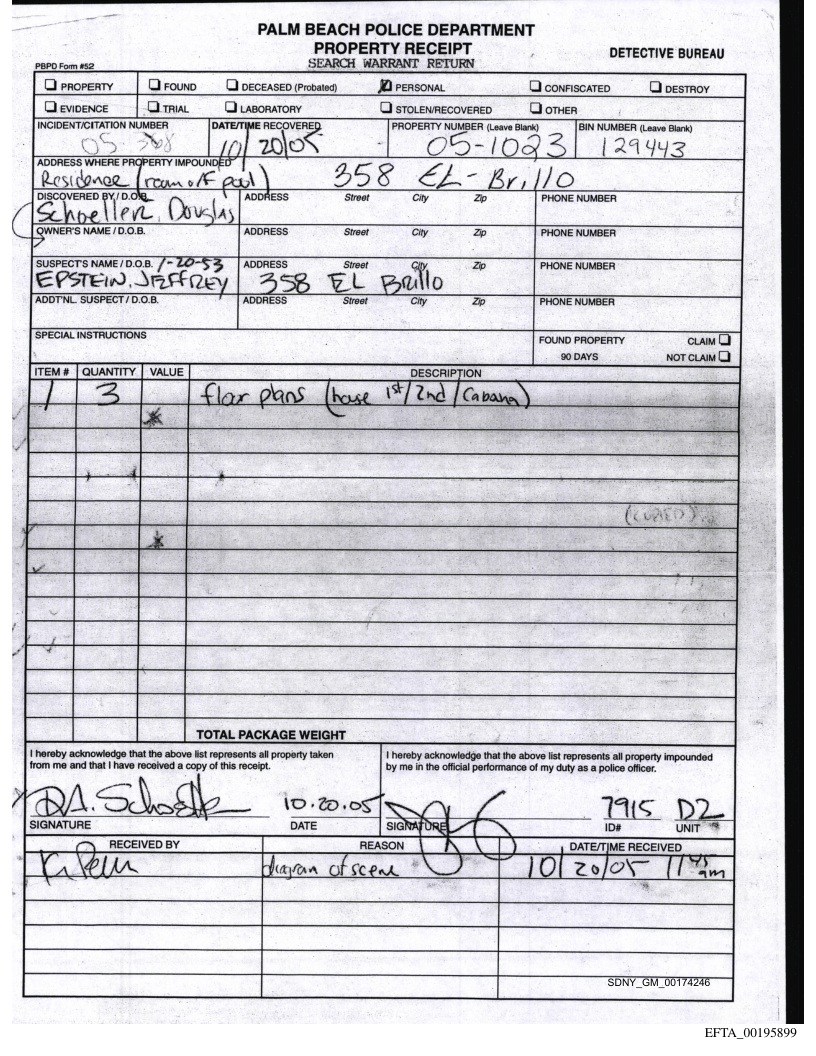 PALM BEACH POLICE DEPARTMENT
PROPERTY RECEIPT
SEARCH WARRANT RETURN
DETECTIVE BUREAU
PBPD Form #52
PROPERTY FOUND DECEASED (Probated) PERSONAL CONFISCATED DESTROY
EVIDENCE TRIAL LABORATORY STOLEN/RECOVERED OTHER
INCIDENT/CITATION NUMBER DATE/TIME RECOVERED PROPERTY NUMBER (Leave Blank) BIN NUMBER (Leave Blank)
05-368 10/20/05 05-1023 129443
ADDRESS WHERE PROPERTY IMPOUNDED
Residence (room off pool) 358 EL-Brillo
DISCOVERED BY / D.O.B. ADDRESS Street City Zip PHONE NUMBER
Schoeller, Douglas
OWNER'S NAME / D.O.B. ADDRESS Street City Zip PHONE NUMBER
SUSPECT'S NAME / D.O.B. 1-20-53 ADDRESS Street City Zip PHONE NUMBER
EPSTEIN, JEFFREY 358 EL Brillo
ADDT'NL. SUSPECT / D.O.B. ADDRESS Street City Zip PHONE NUMBER
SPECIAL INSTRUCTIONS
FOUND PROPERTY CLAIM
90 DAYS NOT CLAIM
ITEM # QUANTITY VALUE DESCRIPTION
1 3 floor plans (house 1st/2nd/Cabana)
TOTAL PACKAGE WEIGHT
I hereby acknowledge that the above list represents all property taken
from me and that I have received a copy of this receipt.
I hereby acknowledge that the above list represents all property impounded
by me in the official performance of my duty as a police officer.
10.20.05 7915 D2
SIGNATURE DATE SIGNATURE ID# UNIT
RECEIVED BY REASON DATE/TIME RECEIVED
diagram of scene 10/20/05 11:45 am
SDNY_GM_00174246
EFTA_00195899